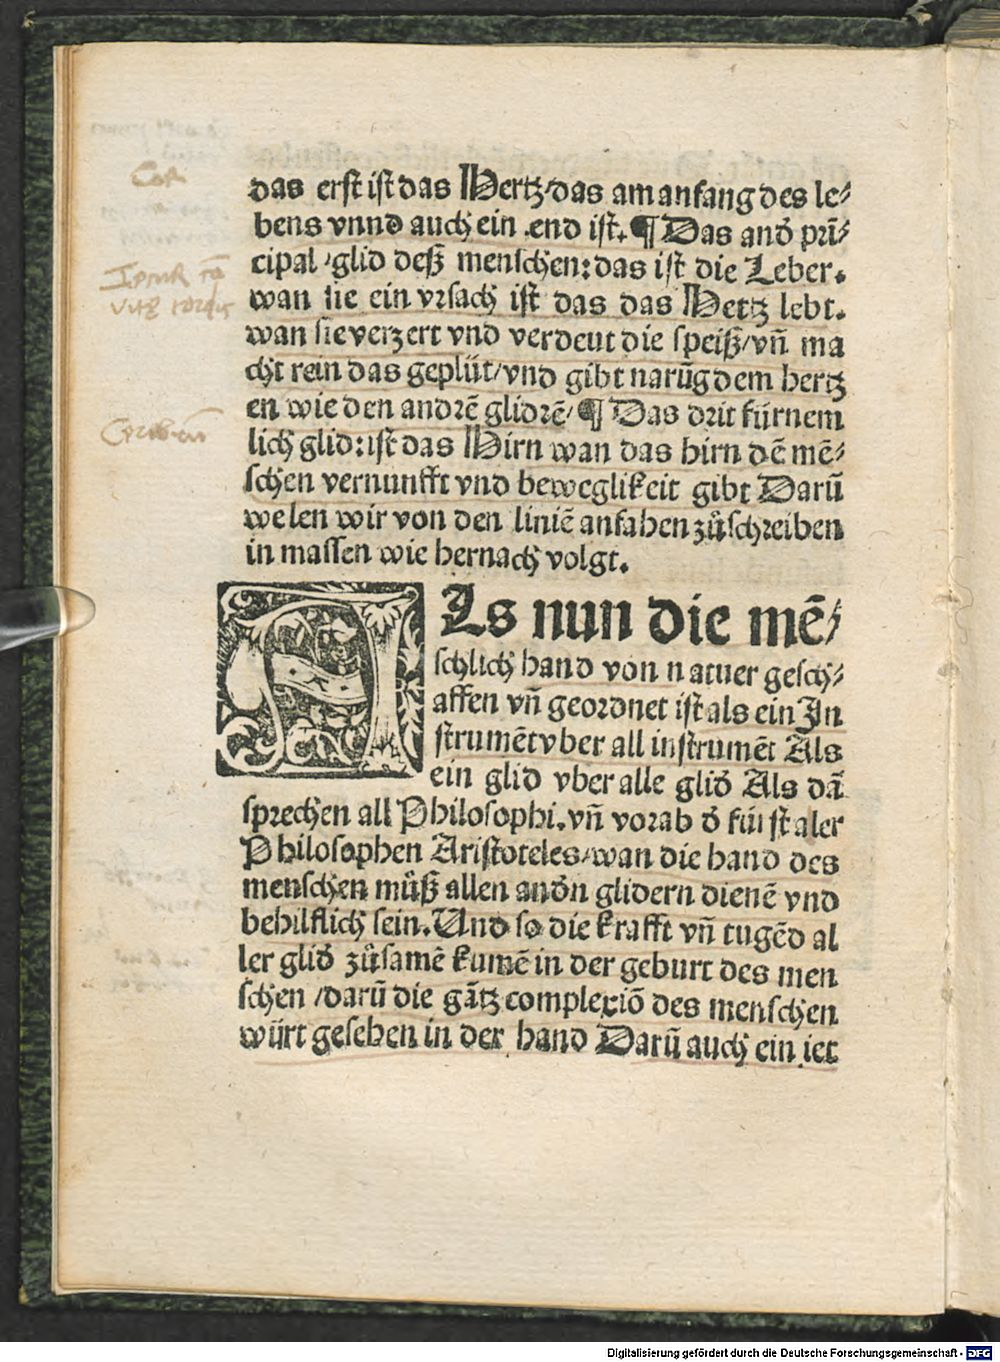 das erst ist das Hertz/das am anfang des le⸗
bens vnnd auch ein end ist. ¶ Das andʼ prī⸗
cipal/glid deß menschen: das ist die Leber.
wan sie ein vrsach ist das das Hertz lebt.
wan sie verzert vnd verdeut die speiß/vñ ma
cht rein das geplüt/vnd gibt narūg dem hertz
en wie den andrē glidrē/¶ Das drit fürnem
lich glid: ist das Hirn wan das hirn dē mē⸗
schen vernunfft vnd beweglikeit gibt Darū
welen wir von den liniē anfahen zůschreiben
in massen wie hernach volgt.
Cor
Cerebrum
ALs nun die mē⸗
schlich hand von natuer gesch⸗
affen vñ geordnet ist als ein In
strumēt vber all instrumēt Als
ein glid vber alle glidʼ Als dā
sprechen all Philosophi. vñ vorab dʼ fürst aler
Philosophen Aristoteles/wan die hand des
menschen můß allen andʼn glidern dienē vnd
behilflich sein. Und so die krafft vñ tugēd al
ler glidʼ zůsamē kumē in der geburt des men
schen/darū die gātz complexiō des menschen
würt gesehen in der hand Darū auch ein iet
Digitalisierung gefördert durch die Deutsche Forschungsgemeinschaft - DFG